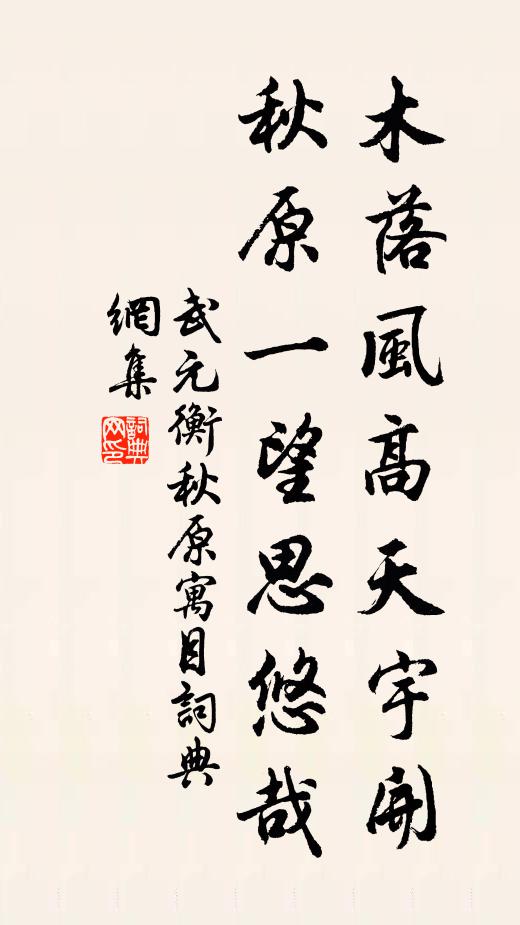 木落風高天宇開
秋原一望思悠哉
武元衡秋原寓目詞典
網集
詞典
网印